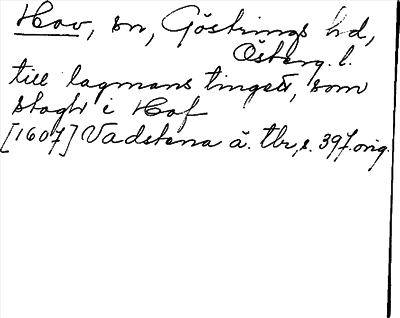 Hov, sn, Göstrings hd,
Österg. l.
till lagmans tinget, som
stogh i Hof
[1607] Vadstena ä. tbr, s. 397. orig.